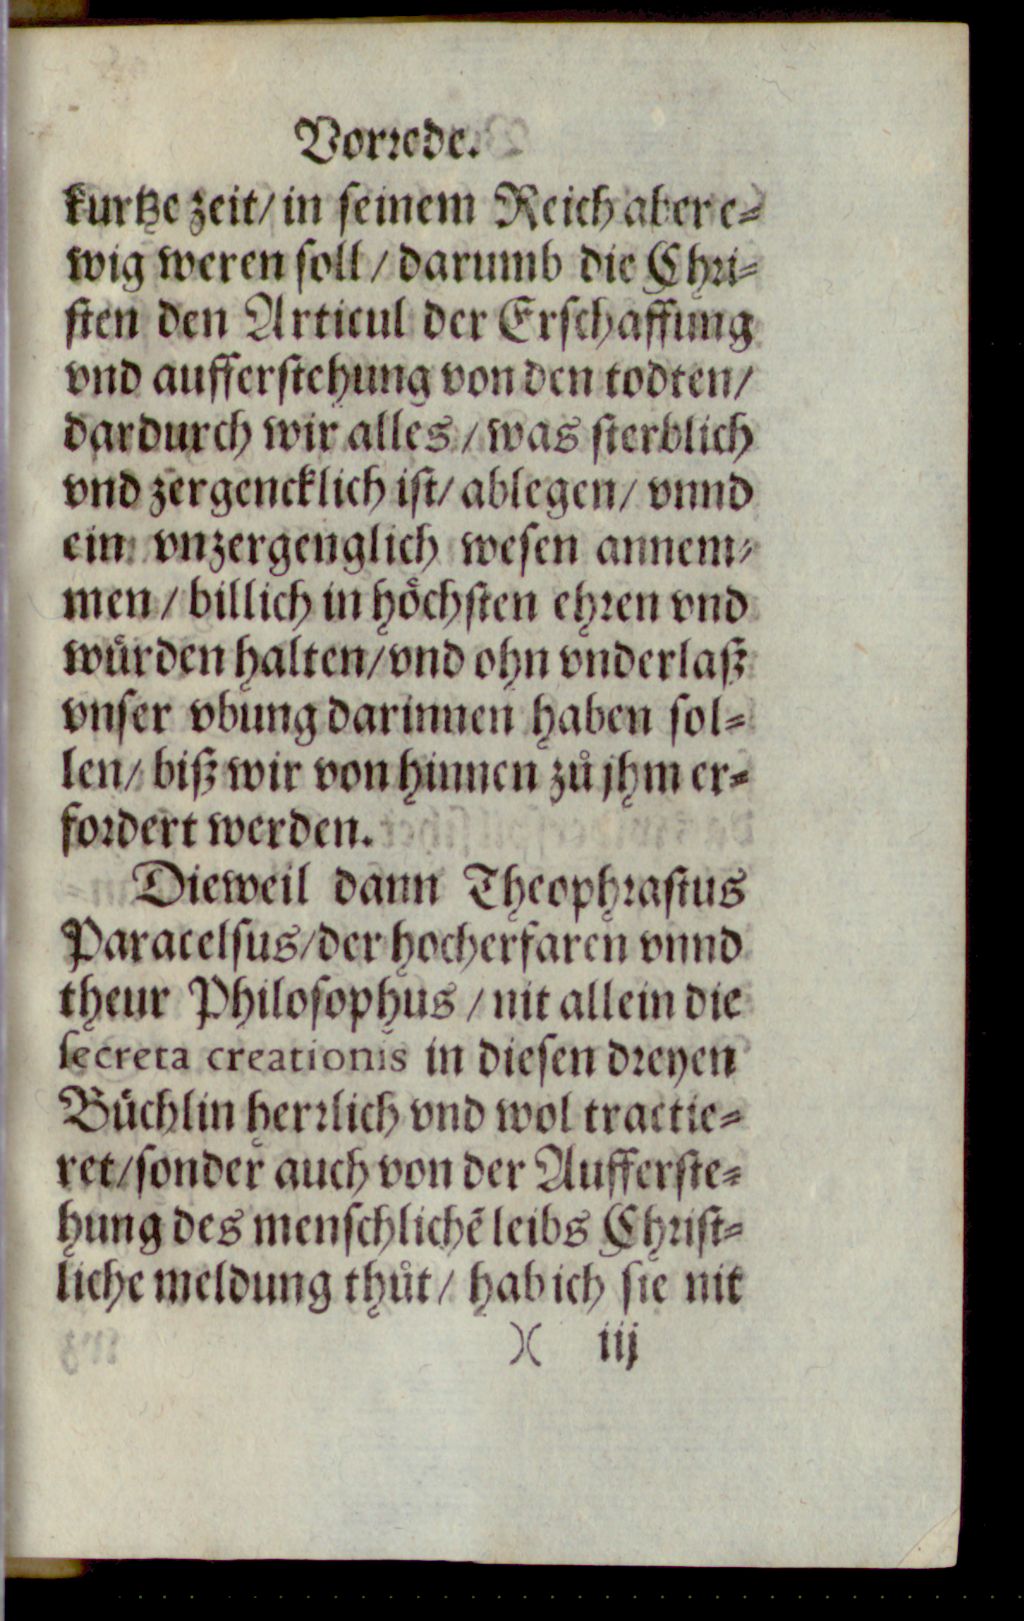 Vorrede.
kurtze zeit/ in seinem Reich aber e-
wig weren soll / darumb die Chri-
sten den Articul der Erschaffung
vnd aufferstehung von den todten/
dardurch wir alles / was sterblich
vnd zergencklich ist/ ablegen/ vnnd
ein vnzergenglich wesen annem-
men / billich in hoͤchsten ehren vnd
wuͤrden halten/ vnd ohn vnderlaß
vnser vbung darinnen haben sol-
len/ biß wir von hinnen zuͦ jhm er-
fordert werden.
Dieweil dann Theophrastus
Paracelsus/ der hocherfaren vnnd
theur Philosophus / nit allein die
secreta creationis in diesen dreyen
Buͤchlin herrlich vnd wol tractie-
ret/ sonder auch von der Aufferste-
hung des menschlichẽ leibs Christ-
liche meldung thuͦt/ hab ich sie nit
)( iij